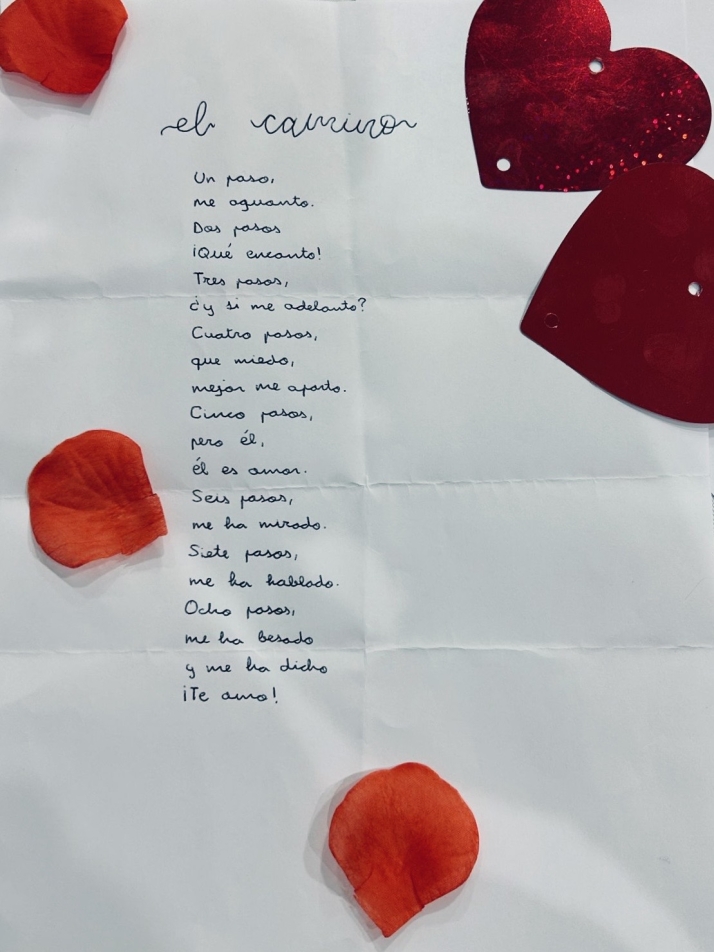 el camino
Un paso,
me aguanto.
Dos pasos
¡Qué encanto!
Tres pasos,
¿y si me adelanto?
Cuatro pasos,
que miedo,
mejor me aparto.
Cinco pasos,
pero él,
él es amor.
Seis pasos,
me ha mirado.
Siete pasos,
me ha hablado.
Ocho pasos,
me ha besado
y me ha dicho
¡Te amo!